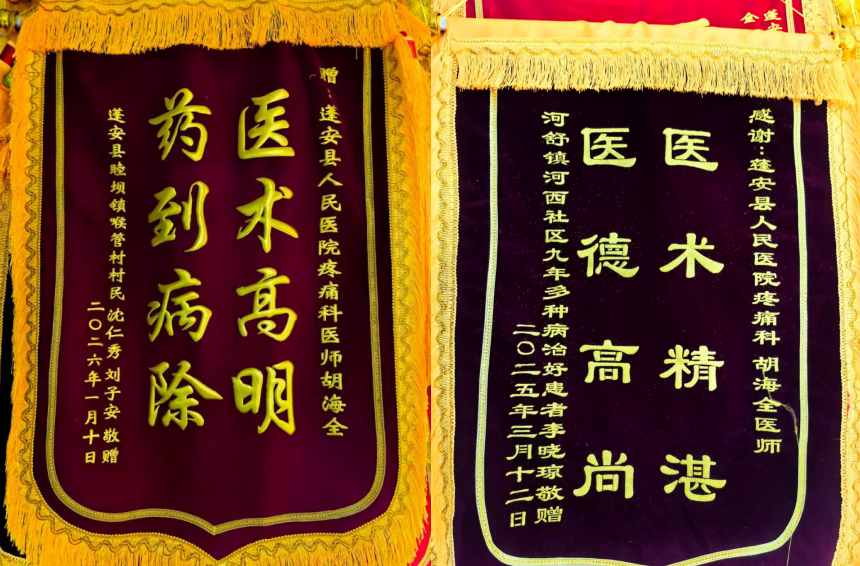 赠：蓬安县人民医院疼痛科医师胡海全
医术高明
药到病除
蓬安县睦坝镇喉管村村民 沈仁秀 刘子安 敬赠
二〇二六年一月十日
感谢：蓬安县人民医院疼痛科 胡海全医师
医术精湛
医德高尚
河舒镇河西社区九年多种病治好患者李晓琼敬赠
二〇二五年三月十二日